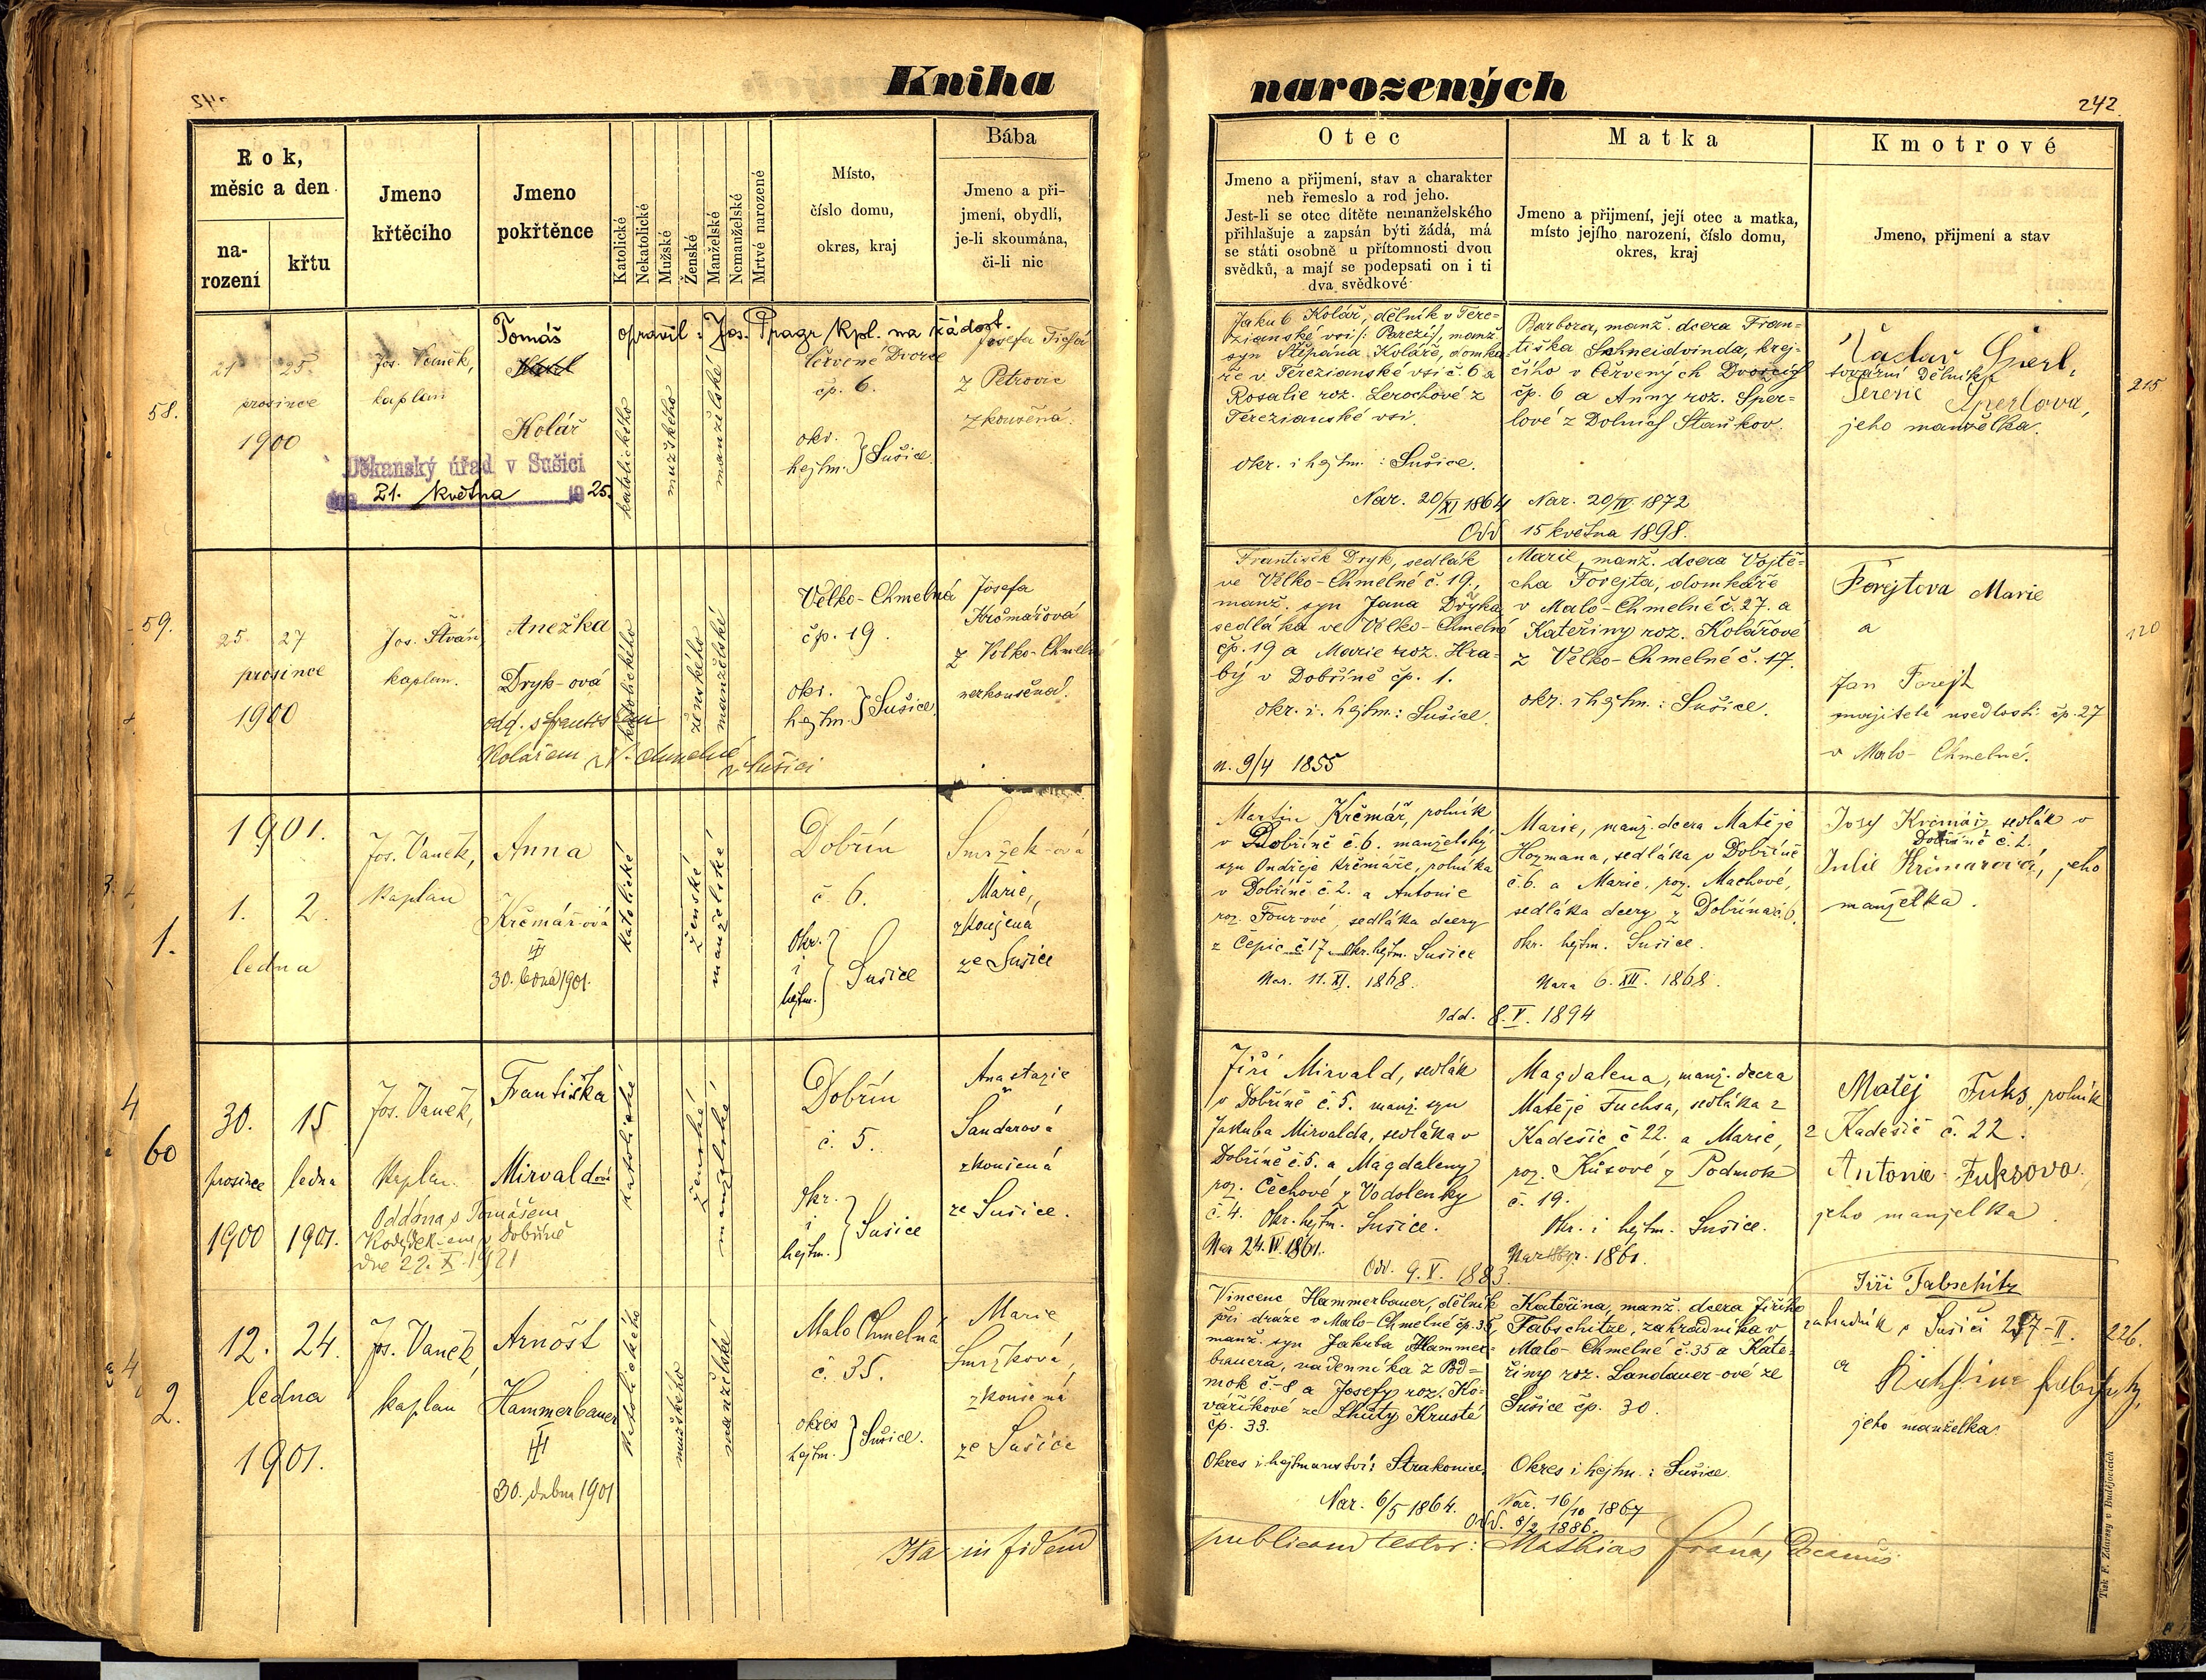 Kniha
narozených
242
Rok,
měsíc a den
na-
rození
křtu
Jmeno
křtěcího
Jmeno
pokřtěnce
Katolické
Nekatolické
Mužské
Ženské
Manželské
Nemanželské
Mrtvé narozené
Místo,
číslo domu,
okres, kraj
Bába
Jmeno a při-
jmení, obydlí,
je-li skoumána,
či-li nic
Otec
Jmeno a přijmení, stav a charakter
neb řemeslo a rod jeho.
Jest-li se otec dítěte nemanželského
přihlašuje a zapsán býti žádá, má
se státi osobně u přítomnosti dvou
svědků, a mají se podepsati on i ti
dva svědkové
Matka
Jmeno a přijmení, její otec a matka,
místo jejího narození, číslo domu,
okres, kraj
Kmotrové
Jmeno, přijmení a stav
58.
21 25.
prosince
1900
Jos. Vaněk,
kaplan
Děkanský úřad v Sušici
dne 21. května 1925.
Tomáš
Karel
Kolář
opravil: Jos. Pragr kpl. na žádost.
katolického
mužského
manželské
Červené Dvorce
čp. 6.
okr.
hejtm. } Sušice.
Josefa Tichá
z Petrovic
zkoušená.
Jakub Kolář, dělník v Tere-
zianské vsi /: Parezí/, manž.
syn Štěpána Koláře, domka-
ře v Terezianské vsi č. 6 a
Rosalie roz. Lerochové z
Terezianské vsi.
okr. i hejtm.: Sušice.
Nar. 20/XI 1864
Barbora, manž. dcera Fran-
tiška Schneidvinda, krej-
čího v Červených Dvorcích
čp. 6 a Anny roz. Sper-
lové z Dolních Staňkov.
Nar. 20/IV 1872
Odd 15 května 1898.
Václav Sperl,
tovární dělník
Terezie Sperlova,
jeho manželka.
215
59.
25. 27
prosince
1900
Jos. Štván,
kaplan.
Anežka
Dryk-ová
odd. s Františkem
Kolářem z V. Chmelné
v Sušici
katolického
ženského
manželské
Velko-Chmelná
čp. 19.
okr.
hejtm. } Sušice.
Josefa
Krčmářová
z Velko-Chmelné
nezkoušená.
František Dryk, sedlák
ve Velko-Chmelné č. 19.,
manž. syn Jana Drýka
sedláka ve Velko-Chmelné
čp. 19 a Marie roz. Hra-
bý v Dobříně čp. 1.
okr. i. hejtm.: Sušice.
n. 9/4 1855
Marie, manž. dcera Vojtě-
cha Forejta, domkáře
v Malo-Chmelné č. 27. a
Kateřiny roz. Kolářové
z Velko-Chmelné č. 17.
okr. i hejtm.: Sušice.
Forejtova Marie
a
Jan Forejt
majitel usedlosti čp. 27
v Malo-Chmelné.
120
1.
1901.
1. 2.
ledna
Jos. Vaněk,
kaplan
Anna
Krčmářová
30. ledna 1901.
katolické
ženské
manželské
Dobřín
č 6.
Okr.
i
hejtm. } Sušice
Smržek-ová
Marie,
zkoušená
ze Sušice
Martin Krčmář, rolník
v Dobříně č. 6. manželský
syn Ondřeje Krčmáře, rolníka
v Dobříně č. 2. a Antonie
roz. Four-ové, sedláka dcery
z Čepic č 17 okr. hejtm. Sušice
Nar. 11. XI. 1868.
Marie, manž. dcera Matěje
Hozmana, sedláka v Dobříně
č. 6. a Marie, roz. Machové,
sedláka dcery z Dobřína č. 6.
Okr. hejtm. Sušice.
Nara 6. XII. 1868.
Odd. 8. V. 1894
Josef Krčmář sedlák v
Dobříně č. 2.
Julie Krčmářová, jeho
manželka.
4
60
30. 15
prosince ledna
1900 1901.
Jos. Vaněk,
kaplan.
Oddána s Tomášem
Kodýdek-em v Dobříně
dne 22. X. 1921
Františka
Mirvaldová
katolické
ženské
manželské
Dobřín
č. 5.
Okr.
i
hejtm. } Sušice
Anastazie
Sandarová
zkoušená
ze Sušice.
Jiří Mirvald, sedlák
v Dobříně č. 5. manž. syn
Jakuba Mirvalda, sedláka v
Dobříně č. 5. a Magdaleny
roz. Čechové z Vodolenky
č. 4. Okr. hejtm. Sušice.
Nar 24. IV. 1861.
Odd. 9. V. 1883.
Magdalena, manž. dcera
Matěje Fuchsa, sedláka z
Kadešic č 22. a Marie,
roz. Kůsové z Podmok
č. 19.
Okr. i hejtm. Sušice.
Nar. 1861.
Matěj Fuks, rolník
z Kadešic č. 22.
Antonie Fuksova.
jeho manželka
2.
12. 24.
ledna
1901.
Jos. Vaněk,
kaplan
Arnošt
Hammerbauer
30. dubna 1901
katolického
mužského
manželské
Malo Chmelná
č. 35.
okres
hejtm. } Sušice.
Marie
Smržková,
zkoušená
ze Sušice
Vincenc Hammerbauer, dělník
při dráze v Malo-Chmelné čp. 35,
manž. syn Jakuba Hammer-
brauera, nádenníka z Pod-
mok č. 8 a Josefy roz. Ko-
váříkové ze Lhůty Krusté
čp. 33.
Okres i hejtmanství: Strakonice.
Nar. 6/5 1864.
Kateřina, manž. dcera Jiřího
Fabschitze, zahradníka v
Malo-Chmelné č. 35 a Kate-
řiny roz. Landauer-ové ze
Sušice čp. 30.
Okres i hejtm.: Sušice.
Nar. 16/10 1867
Odd. 8/2 1886.
Jiří Fabschitz
zahradník v Sušici 257-II.
a
jeho manželka.
226.
Ita in fidem
publicam testor: Mathias Frána, Decanus
Tisk F. Zdarssy v Budějovicích